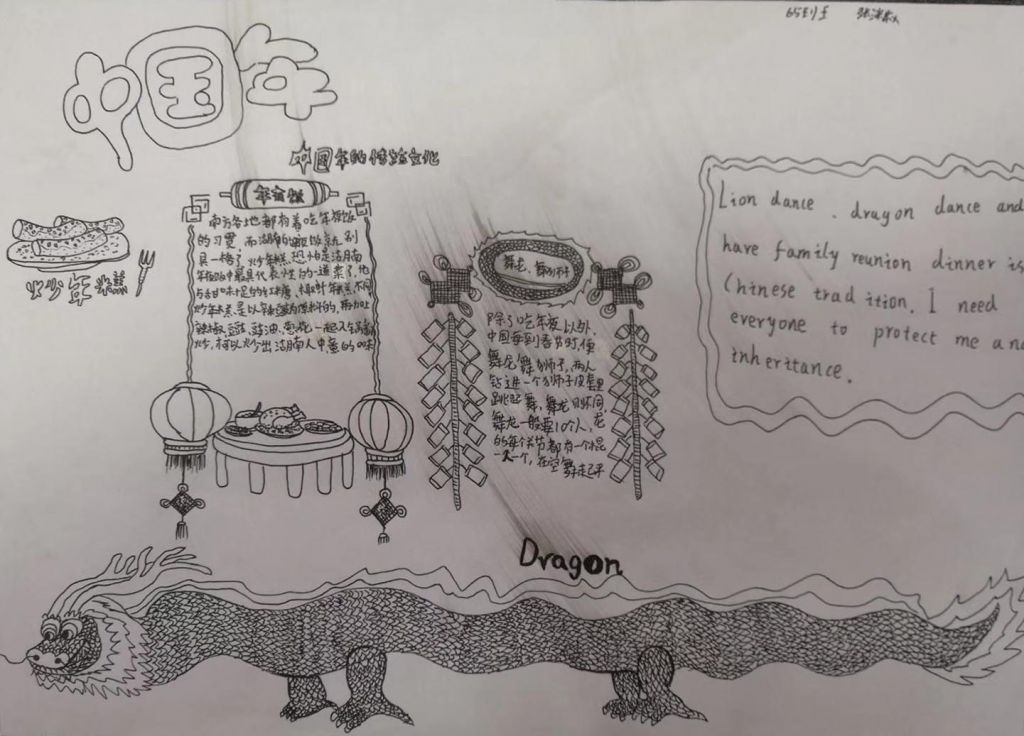 中国年
中国年的传统文化
年夜饭
南方各地都有着吃年夜饭
的习惯,而湖南的年夜饭就别
具一格了,炒年糕恐怕是湖南
年夜饭中最具代表性的一道菜了,他
与甜味十足的红糖
炒年糕,是以辣
辣椒 豉油、葱花一起入锅
炒,可以炒出湖南人中意的口味
炒年糕
舞龙、舞狮
除了吃年夜以外,
中国每到春节时便
舞龙舞狮子,两人
钻进一个狮子皮套里
跳起舞,舞龙则不同
舞龙一般要10个人,龙
的每个关节都有一个棍
一人一个,在空舞起来
Lion dance 、dragon dance and
have family reunion dinner is
Chinese tradition. I need
everyone to protect me and
inherittance.
Dragon